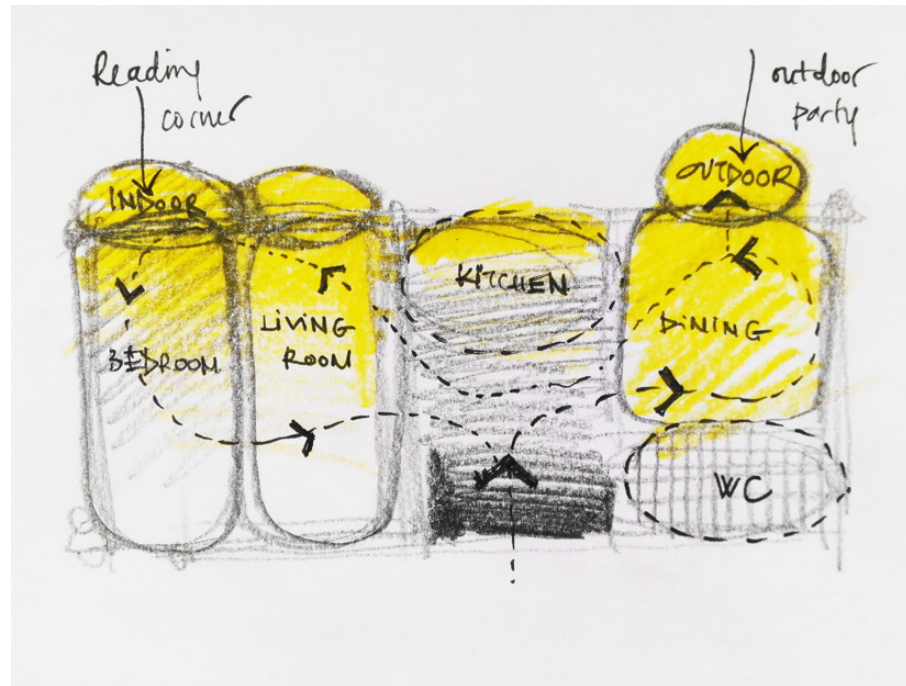 Reading
corner
outdoor
party
INDOOR
OUTDOOR
KITCHEN
LIVING
ROOM
DINING
BEDROOM
WC